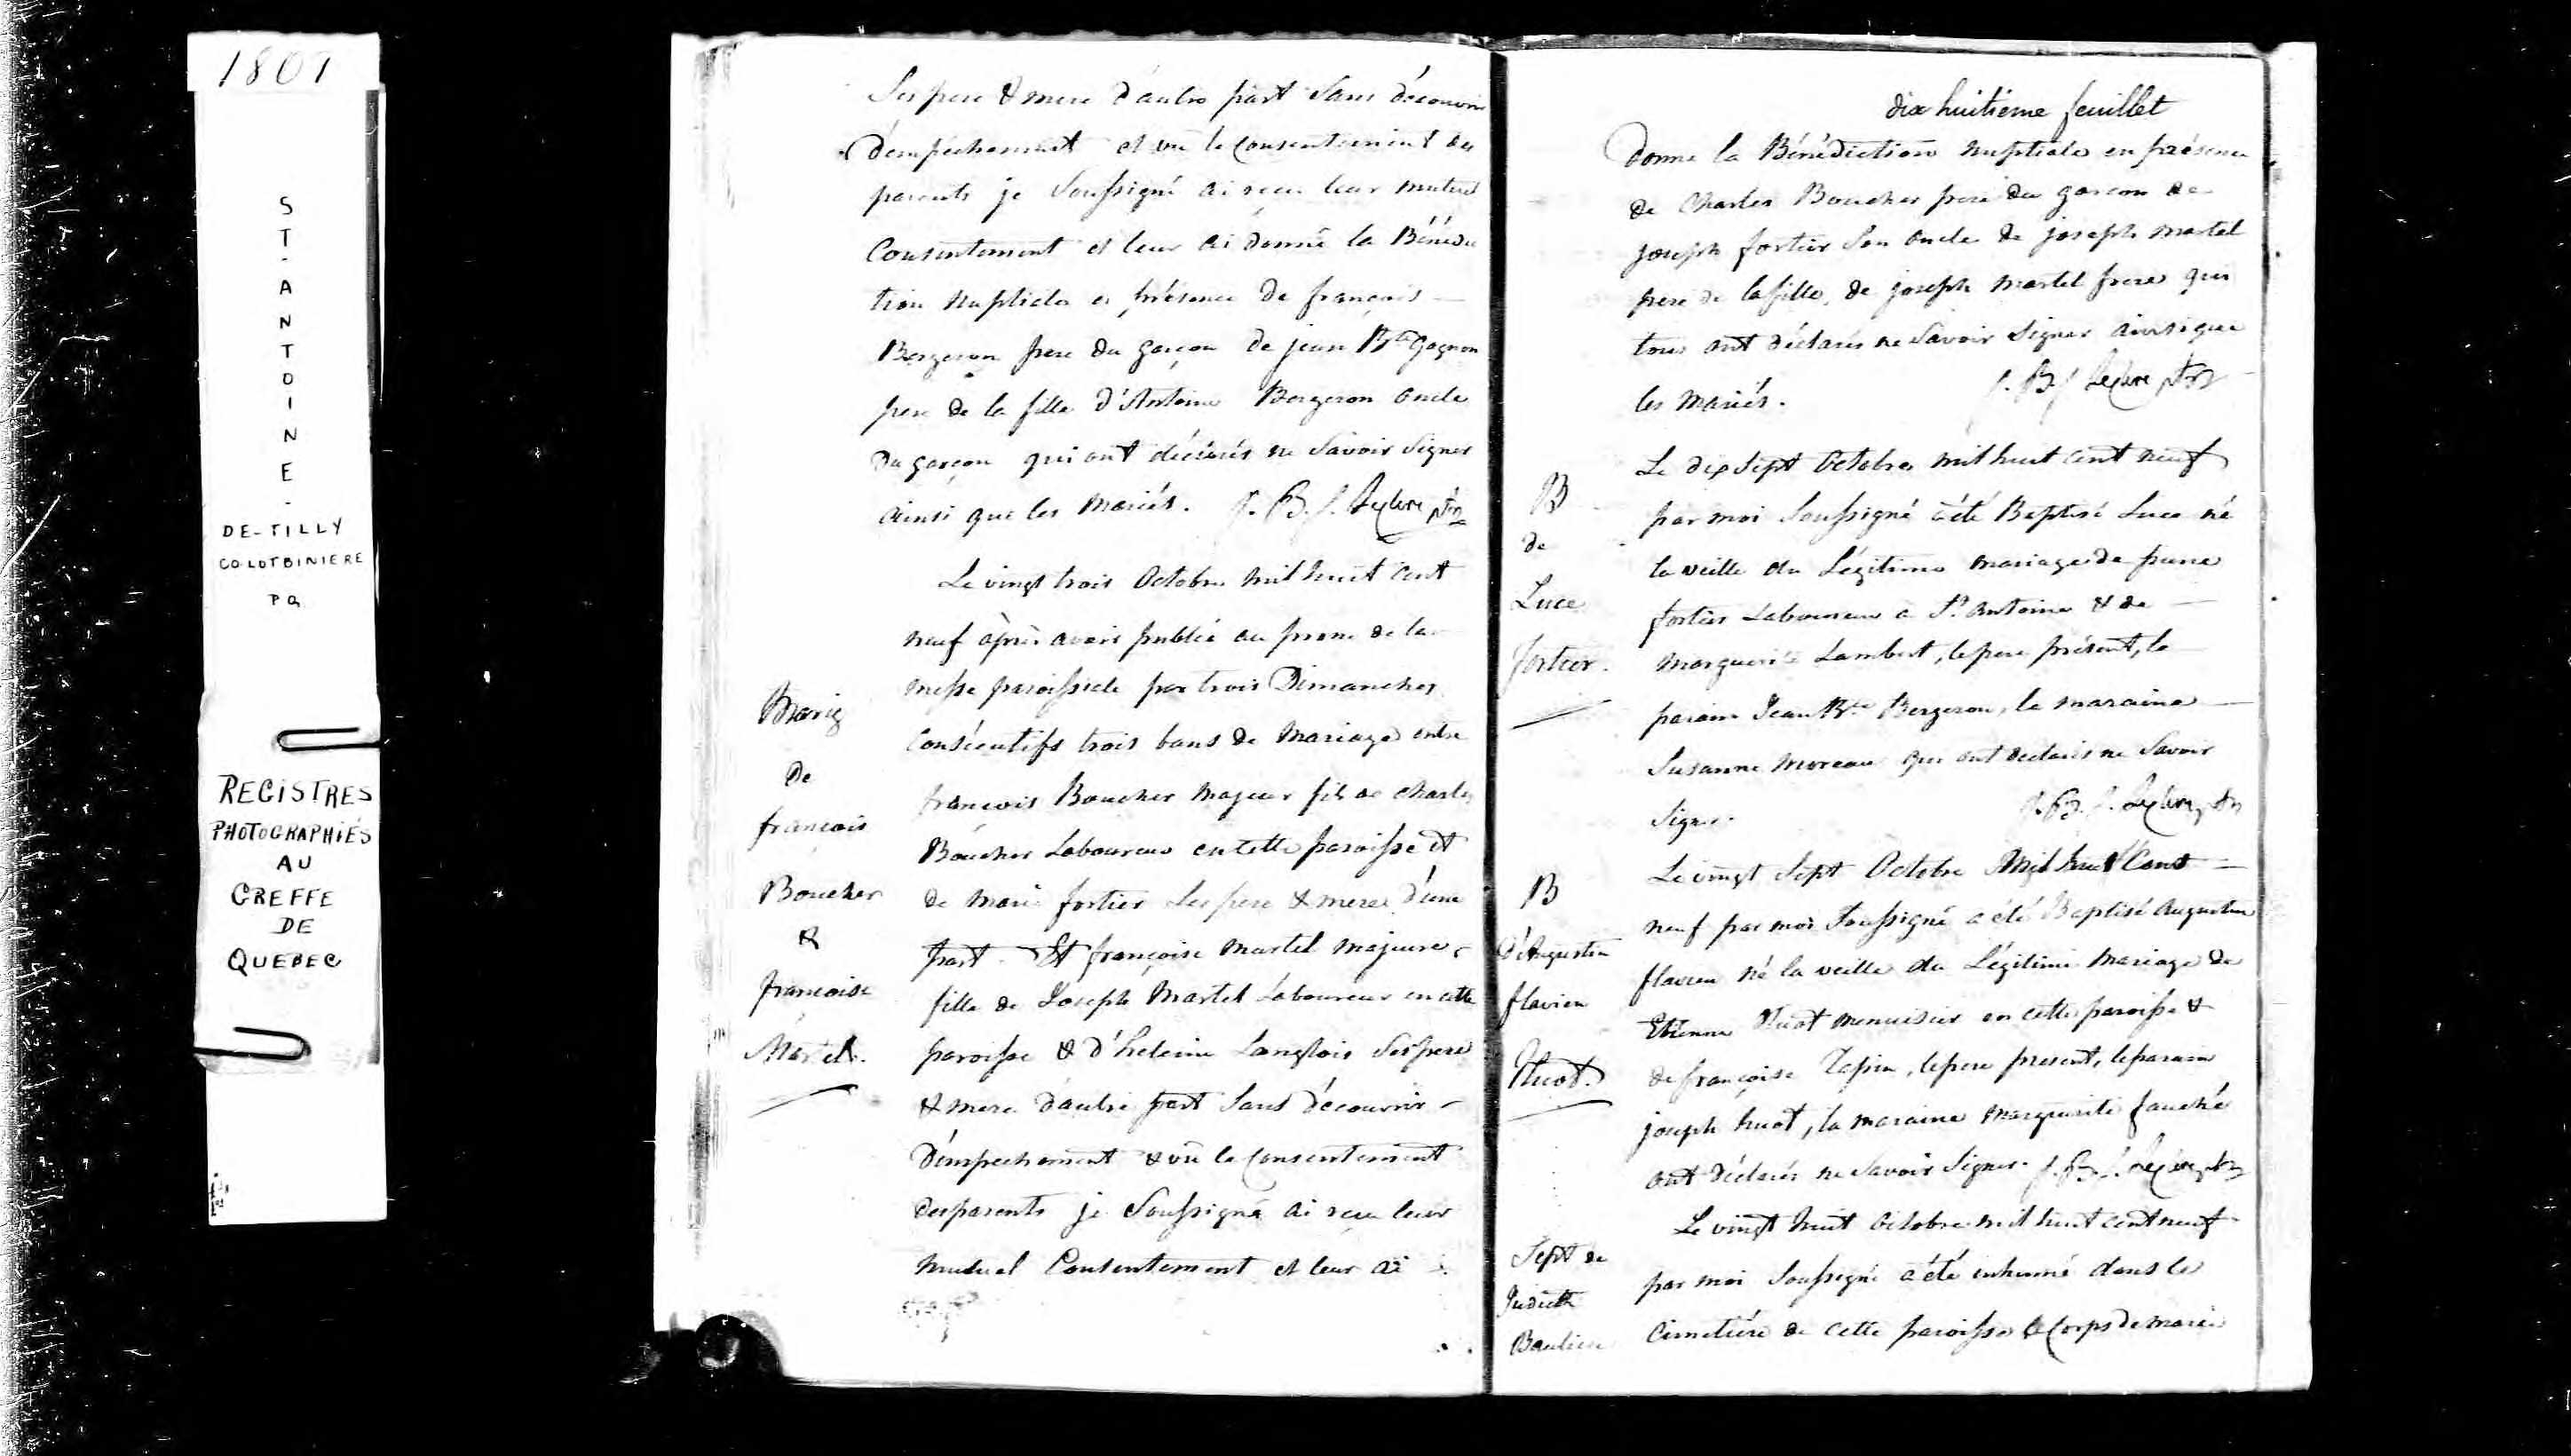 1809
ST-ANTOINE-
DE-TILLY
CO-LOTBINIERE
PQ
REGISTRES
PHOTOGRAPHIÉS
AU
GREFFE
DE
QUEBEC
Ses pere & mere d'autre part sans découvrir
d'empéchement et vu le Consentement des
parents je Soussigné ai recu leur mutuel
Consentement et leur ai donné la Bénédic
tion Nuptiale en présence de françois
Bergeron pere du garçon de jean Bte Gagnon
pere de la fille d'Antoine Bergeron oncle
du garçon qui ont déclarés ne Savoir Signer
ainsi que les Mariés. J. B. J. Leclerc ptre
Marig
de
francois
Boucher
&
françoise
Martel.
Le vingt trois Octobre mil huit cent
neuf après avoir publié au prone de la
messe paroissiale par trois Dimanches
Consécutifs trois bans de Mariage entre
françois Boucher majeur fils de Charles
Boucher Laboureur en cette paroisse et
de marie fortier Ses pere & mere d'une
part - Et françoise Martel majeure
fille de Joseph Martel Laboureur en cette
paroisse & d'heleine Langlois Ses pere
& mere d'autre part Sans découvrir
d'empechement & vu le Consentement
des parents je Soussigné ai recu leur
mutuel Consentement et leur ai
dix huitieme feuillet
donné la Bénédiction nuptiale en présence
de Charles Boucher pere du garcon de
joseph fortier Son oncle de joseph Martel
pere de la fille, de joseph Martel frere qui
tous ont déclarés ne Savoir Signer ainsi que
les Mariés. J. B. J. Leclerc ptre
B
de
Luce
fortier.
Le dix Sept Octobre mil huit cent neuf
par moi Soussigné a été Baptisé Luce né
la veille du Légitime mariage de
fortier Laboureur à St. Antoine & de
Marguerite Lambert, le pere présent, le
parain Jean Bte Bergeron, la maraine
Susanne Moreau qui ont declarés ne Savoir
Signer. J. B. J. Leclerc ptre
B
d'Augustin
flavien
Huot.
Le vingt Sept Octobre Mil huit Cent
neuf par moi Soussigné a été Baptisé Augustin
flavien né la veille du Légitime Mariage de
Etienne Huot menuisier en cette paroisse &
de françoise Tapin, le pere present, le parain
joseph huot, la maraine Marguerite fauché
ont déclarés ne Savoir Signer. J. B. J. Leclerc ptre
Sept de
Judith
Baulieu
Le vingt huit Octobre mil huit cent neuf
par moi Soussigné a été inhumé dans le
Cimetiére de cette paroisse le Corps de marie